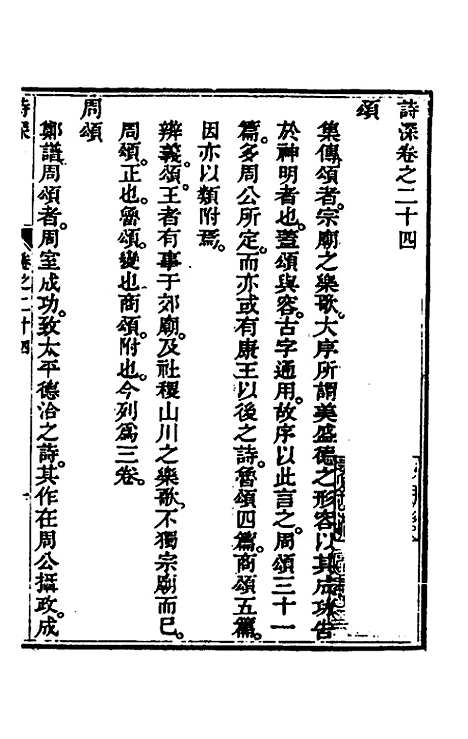 詩深卷之二十四
頌
集傳頌者。宗廟之樂歌。大序所謂美盛德之形容以其成功告
於神明者也。蓋頌與容。古字通用。故序以此言之。周頌三十一
篇。多周公所定。而亦或有康王以後之詩。魯頌四篇。商頌五篇。
因亦以類附焉。
辨義。頌王者有事于郊廟。及社稷山川之樂歌。不獨宗廟而已。
周頌。正也。魯頌。變也。商頌。附也。今列為三卷。
周頌
鄭譜周頌者。周室成功。致太平德洽之詩。其作在周公攝政。成
詩深
卷之二十四
一